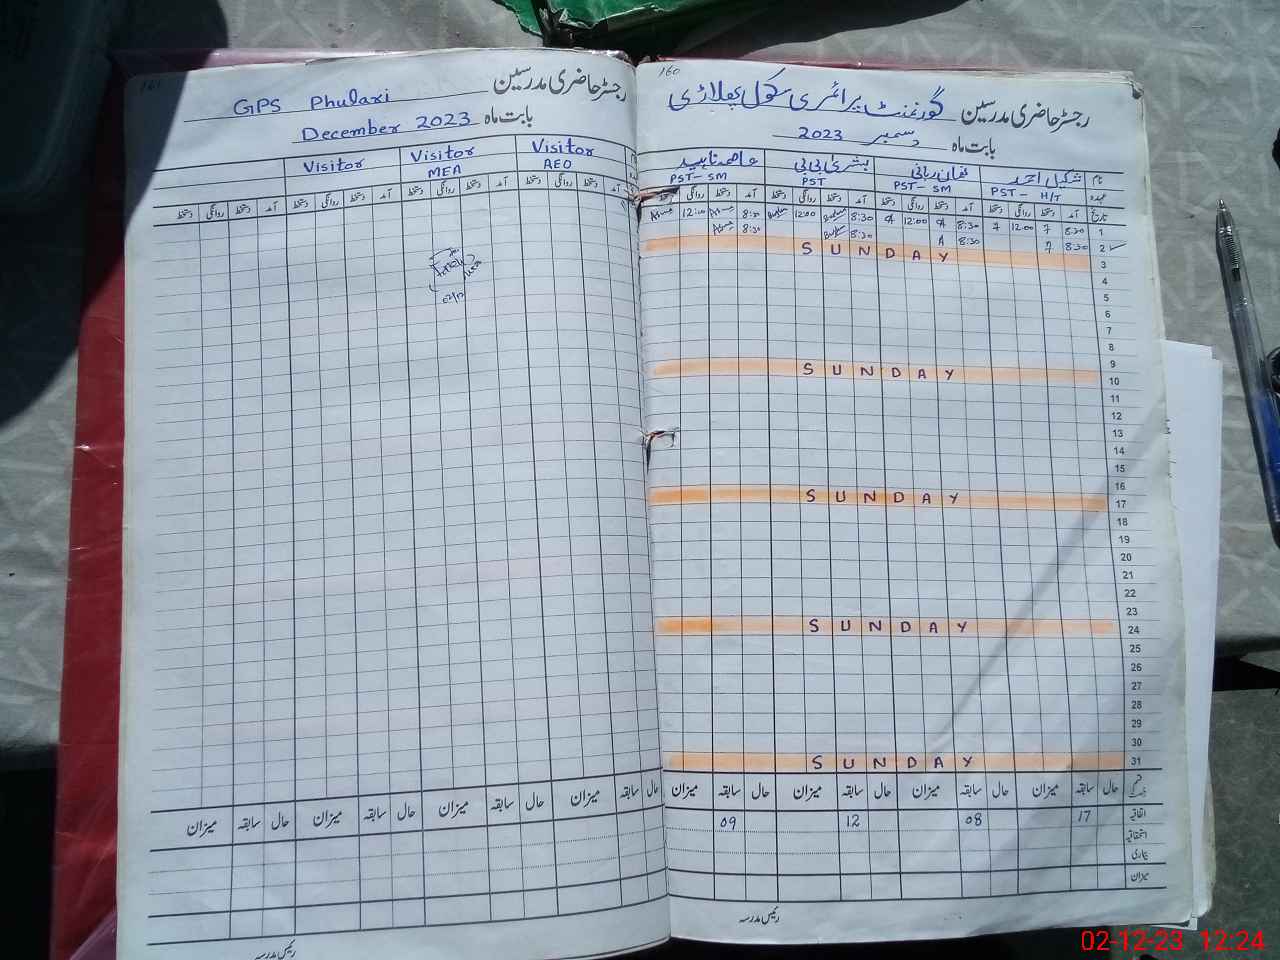 160
رجسٹر حاضری مدرسین گورنمنٹ پرائمری سکول پھلاڑی
بابت ماہ دسمبر 2023
نام شکیل احمد بشریٰ بی بی عاصمہ ناہید
عہدہ PST - H/T PST - SM PST PST - SM
تاریخ آمد دستخط روانگی دستخط آمد دستخط روانگی دستخط آمد دستخط روانگی دستخط آمد دستخط روانگی
1 8:30 12:00 8:30 12:00 8:30 12:00 8:30 12:00
2 8:30 8:30 8:30 8:30
3 SUNDAY
4
5
6
7
8
9
10 SUNDAY
11
12
13
14
15
16
17 SUNDAY
18
19
20
21
22
23
24 SUNDAY
25
26
27
28
29
30
31 SUNDAY
حال سابقہ میزان حال سابقہ میزان حال سابقہ میزان حال سابقہ میزان
اتفاقیہ 17 08 12 09
استحقاقیہ
بیماری
میزان
رئیس مدرسہ
161
رجسٹر حاضری مدرسین GPS Phulari
بابت ماہ December 2023
Visitor Visitor Visitor
AEO MEA
آمد دستخط روانگی دستخط آمد دستخط روانگی دستخط آمد دستخط روانگی دستخط آمد دستخط روانگی دستخط
حال سابقہ میزان حال سابقہ میزان حال سابقہ میزان حال سابقہ میزان
رئیس مدرسہ
02-12-23 12:24